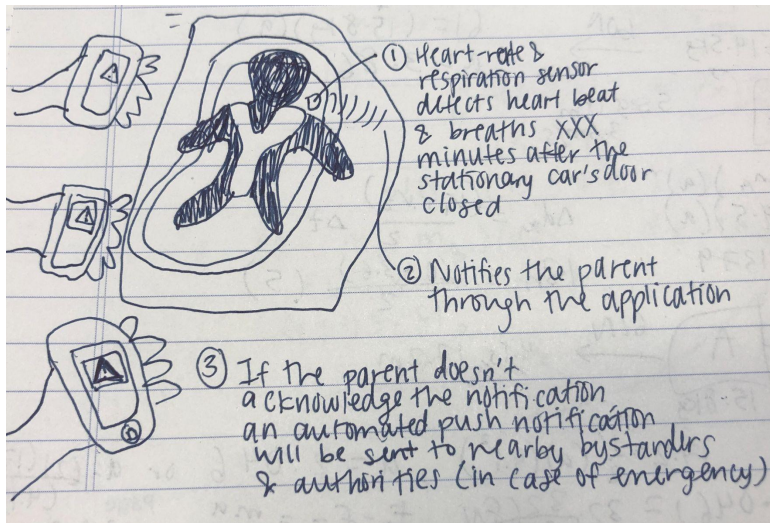 ① Heart-rate &
respiration sensor
detects heart beat
& breaths XXX
minutes after the
stationary car's door
closed
② Notifies the parent
through the application
③ If the parent doesn't
acknowledge the notification
an automated push notification
will be sent to nearby bystanders
& authorities (in case of emergency)